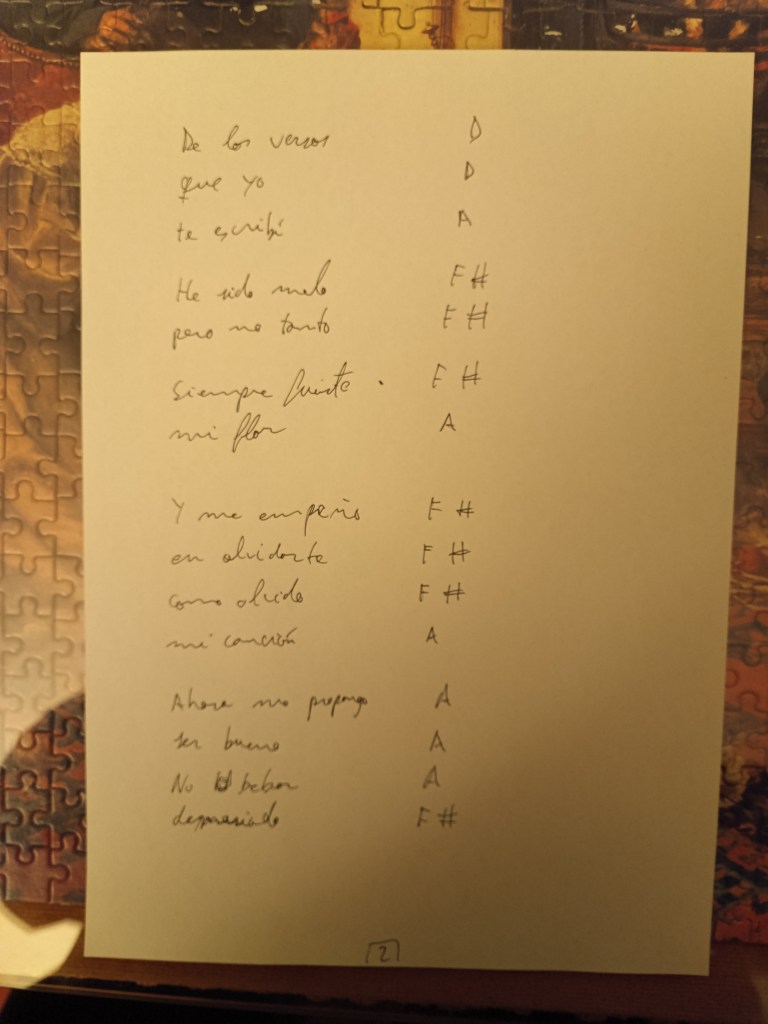 De los versos D
que yo D
te escribí A
He sido malo F#
pero no tanto F#
Siempre fuiste . F#
mi flor A
Y me empeño F#
en olvidarte F#
como olvido F#
mi canción A
Ahora me propongo A
ser bueno A
No beber A
demasiado F#
2